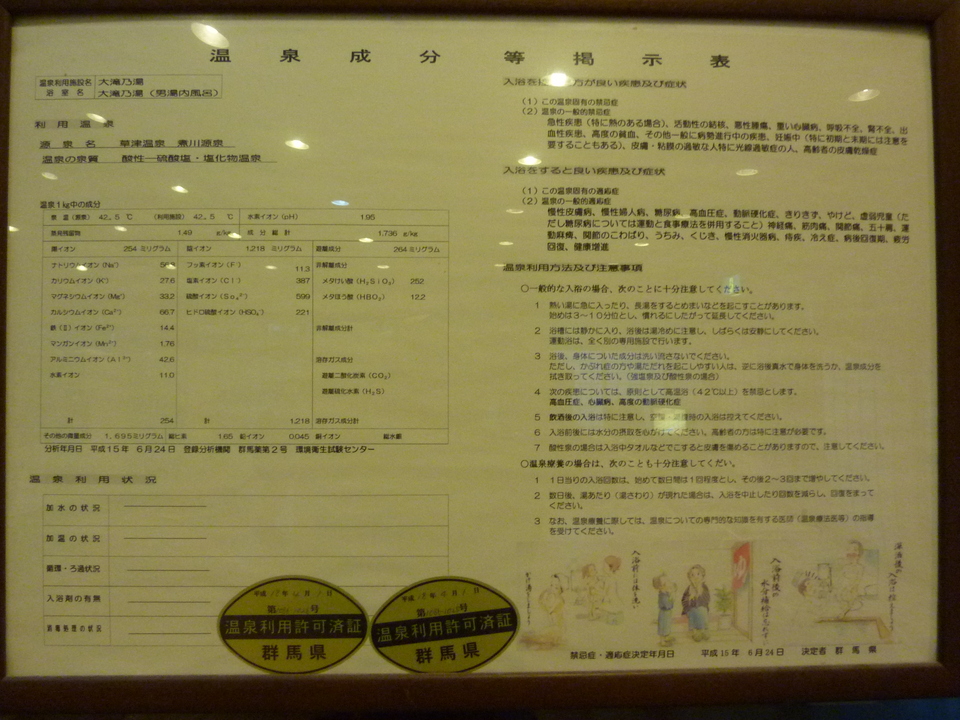 温泉成分等掲示表
温泉利用施設名 大滝乃湯
浴室名 大滝乃湯(男湯内風呂)
利用温泉
源泉名 草津温泉 煮川源泉
温泉の泉質 酸性-硫酸塩・塩化物温泉
温泉1kg中の成分
泉温(源泉) 42.5 ℃ (利用施設) 42.5 ℃ 水素イオン(pH) 1.95
蒸発残留物 1.49 g/kg 成分総計 1.736 g/kg
陽イオン 254 ミリグラム 陰イオン 1,218 ミリグラム 遊離成分 264 ミリグラム
ナトリウムイオン(Na⁺) フッ素イオン(F⁻) 11.3 非解離成分
カリウムイオン(K⁺) 27.6 塩素イオン(Cl⁻) 387 メタけい酸(H₂SiO₃) 252
マグネシウムイオン(Mg²⁺) 33.2 硫酸イオン(SO₄²⁻) 599 メタほう酸(HBO₂) 12.2
カルシウムイオン(Ca²⁺) 66.7 ヒドロ硫酸イオン(HSO₄⁻) 221
鉄(Ⅱ)イオン(Fe²⁺) 14.4 非解離成分計
マンガンイオン(Mn²⁺) 1.76
アルミニウムイオン(Al³⁺) 42.6 溶存ガス成分
水素イオン 11.0 遊離二酸化炭素(CO₂)
遊離硫化水素(H₂S)
計 254 計 1,218 溶存ガス成分計
その他の微量成分 1.695ミリグラム 総ヒ素 1.65 鉛イオン 0.045 銅イオン 総水銀
分析年月日 平成15年 6月24日 登録分析機関 群馬薬第2号 環境衛生試験センター
温泉利用状況
加水の状況
加温の状況
循環・ろ過状況
入浴剤の有無
消毒処理の状況
平成 年 月 日
第 号
温泉利用許可済証
群馬県
平成 年 月 日
第 号
温泉利用許可済証
群馬県
入浴を 方が良い疾患及び症状
(1) この温泉固有の禁忌症
(2) 温泉の一般的禁忌症
急性疾患(特に熱のある場合)、活動性の結核、悪性腫瘍、重い心臓病、呼吸不全、腎不全、出
血性疾患、高度の貧血、その他一般に病勢進行中の疾患、妊娠中(特に初期と末期には注意を
要することもある)、皮膚・粘膜の過敏な人特に光線過敏症の人、高齢者の皮膚乾燥症
入浴をすると良い疾患及び症状
(1) この温泉固有の適応症
(2) 温泉の一般的適応症
慢性皮膚病、慢性婦人病、糖尿病、高血圧症、動脈硬化症、きりきず、やけど、虚弱児童(た
だし糖尿病については運動と食事療法を併用すること)神経痛、筋肉痛、関節痛、五十肩、運
動麻痺、関節のこわばり、うちみ、くじき、慢性消火器病、痔疾、冷え症、病後回復期、疲労
回復、健康増進
温泉利用方法及び注意事項
○一般的な入浴の場合、次のことに十分注意してください。
1 熱い湯に急に入ったり、長湯をするとめまいなどを起こすことがあります。
始めは3~10分位とし、慣れるにしたがって延長してください。
2 浴槽には静かに入り、浴後は湯冷めに注意し、しばらくは安静にしてください。
運動浴は、全く別の専用施設で行います。
3 浴後、身体についた成分は洗い流さないでください。
ただし、かぶれ症の方や湯ただれを起こしやすい人は、逆に浴後真水で身体を洗うか、温泉成分を
拭き取ってください。(強塩泉及び酸性泉の場合)
4 次の疾患については、原則として高温浴(42℃以上)を禁忌とします。
高血圧症、心臓病、高度の動脈硬化症
5 飲酒後の入浴は特に注意し、空腹・満腹時の入浴は控えてください。
6 入浴前後には水分の摂取を心がけてください。高齢者の方は特に注意が必要です。
7 酸性泉の場合は入浴中タオルなどでこすると皮膚を傷めることがありますので、注意してください。
○温泉療養の場合は、次のことも十分注意してくだい。
1 1日当りの入浴回数は、始めて数日間は1回程度とし、その後2~3回まで増やしてください。
2 数日後、湯あたり(湯さわり)が現れた場合は、入浴を中止したり回数を減らし、回復をまって
ください。
3 なお、温泉療養に際しては、温泉についての専門的な知識を有する医師(温泉療法医等)の指導
を受けてください。
ゆ
禁忌症・適応症決定年月日 平成15年 6月24日 決定者 群馬県